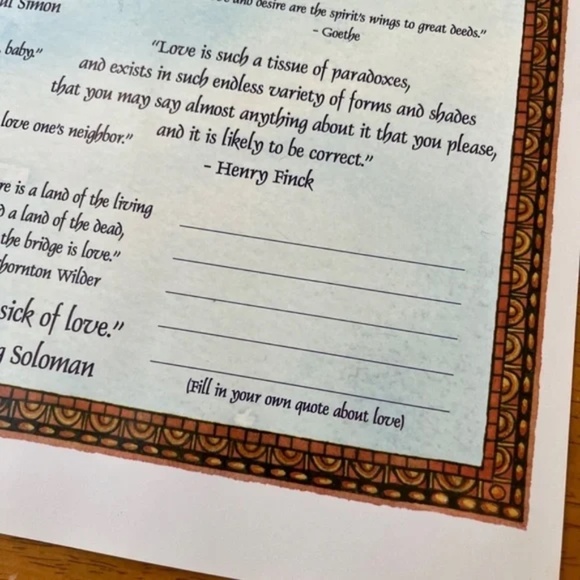 Simon
and desire are the spirit's wings to great deeds."
- Goethe
baby."
"Love is such a tissue of paradoxes,
and exists in such endless variety of forms and shades
that you may say almost anything about it that you please,
and it is likely to be correct."
- Henry Finck
love one's neighbor."
re is a land of the living
a land of the dead,
the bridge is love."
hornton Wilder
sick of love."
g Soloman
(Fill in your own quote about love)